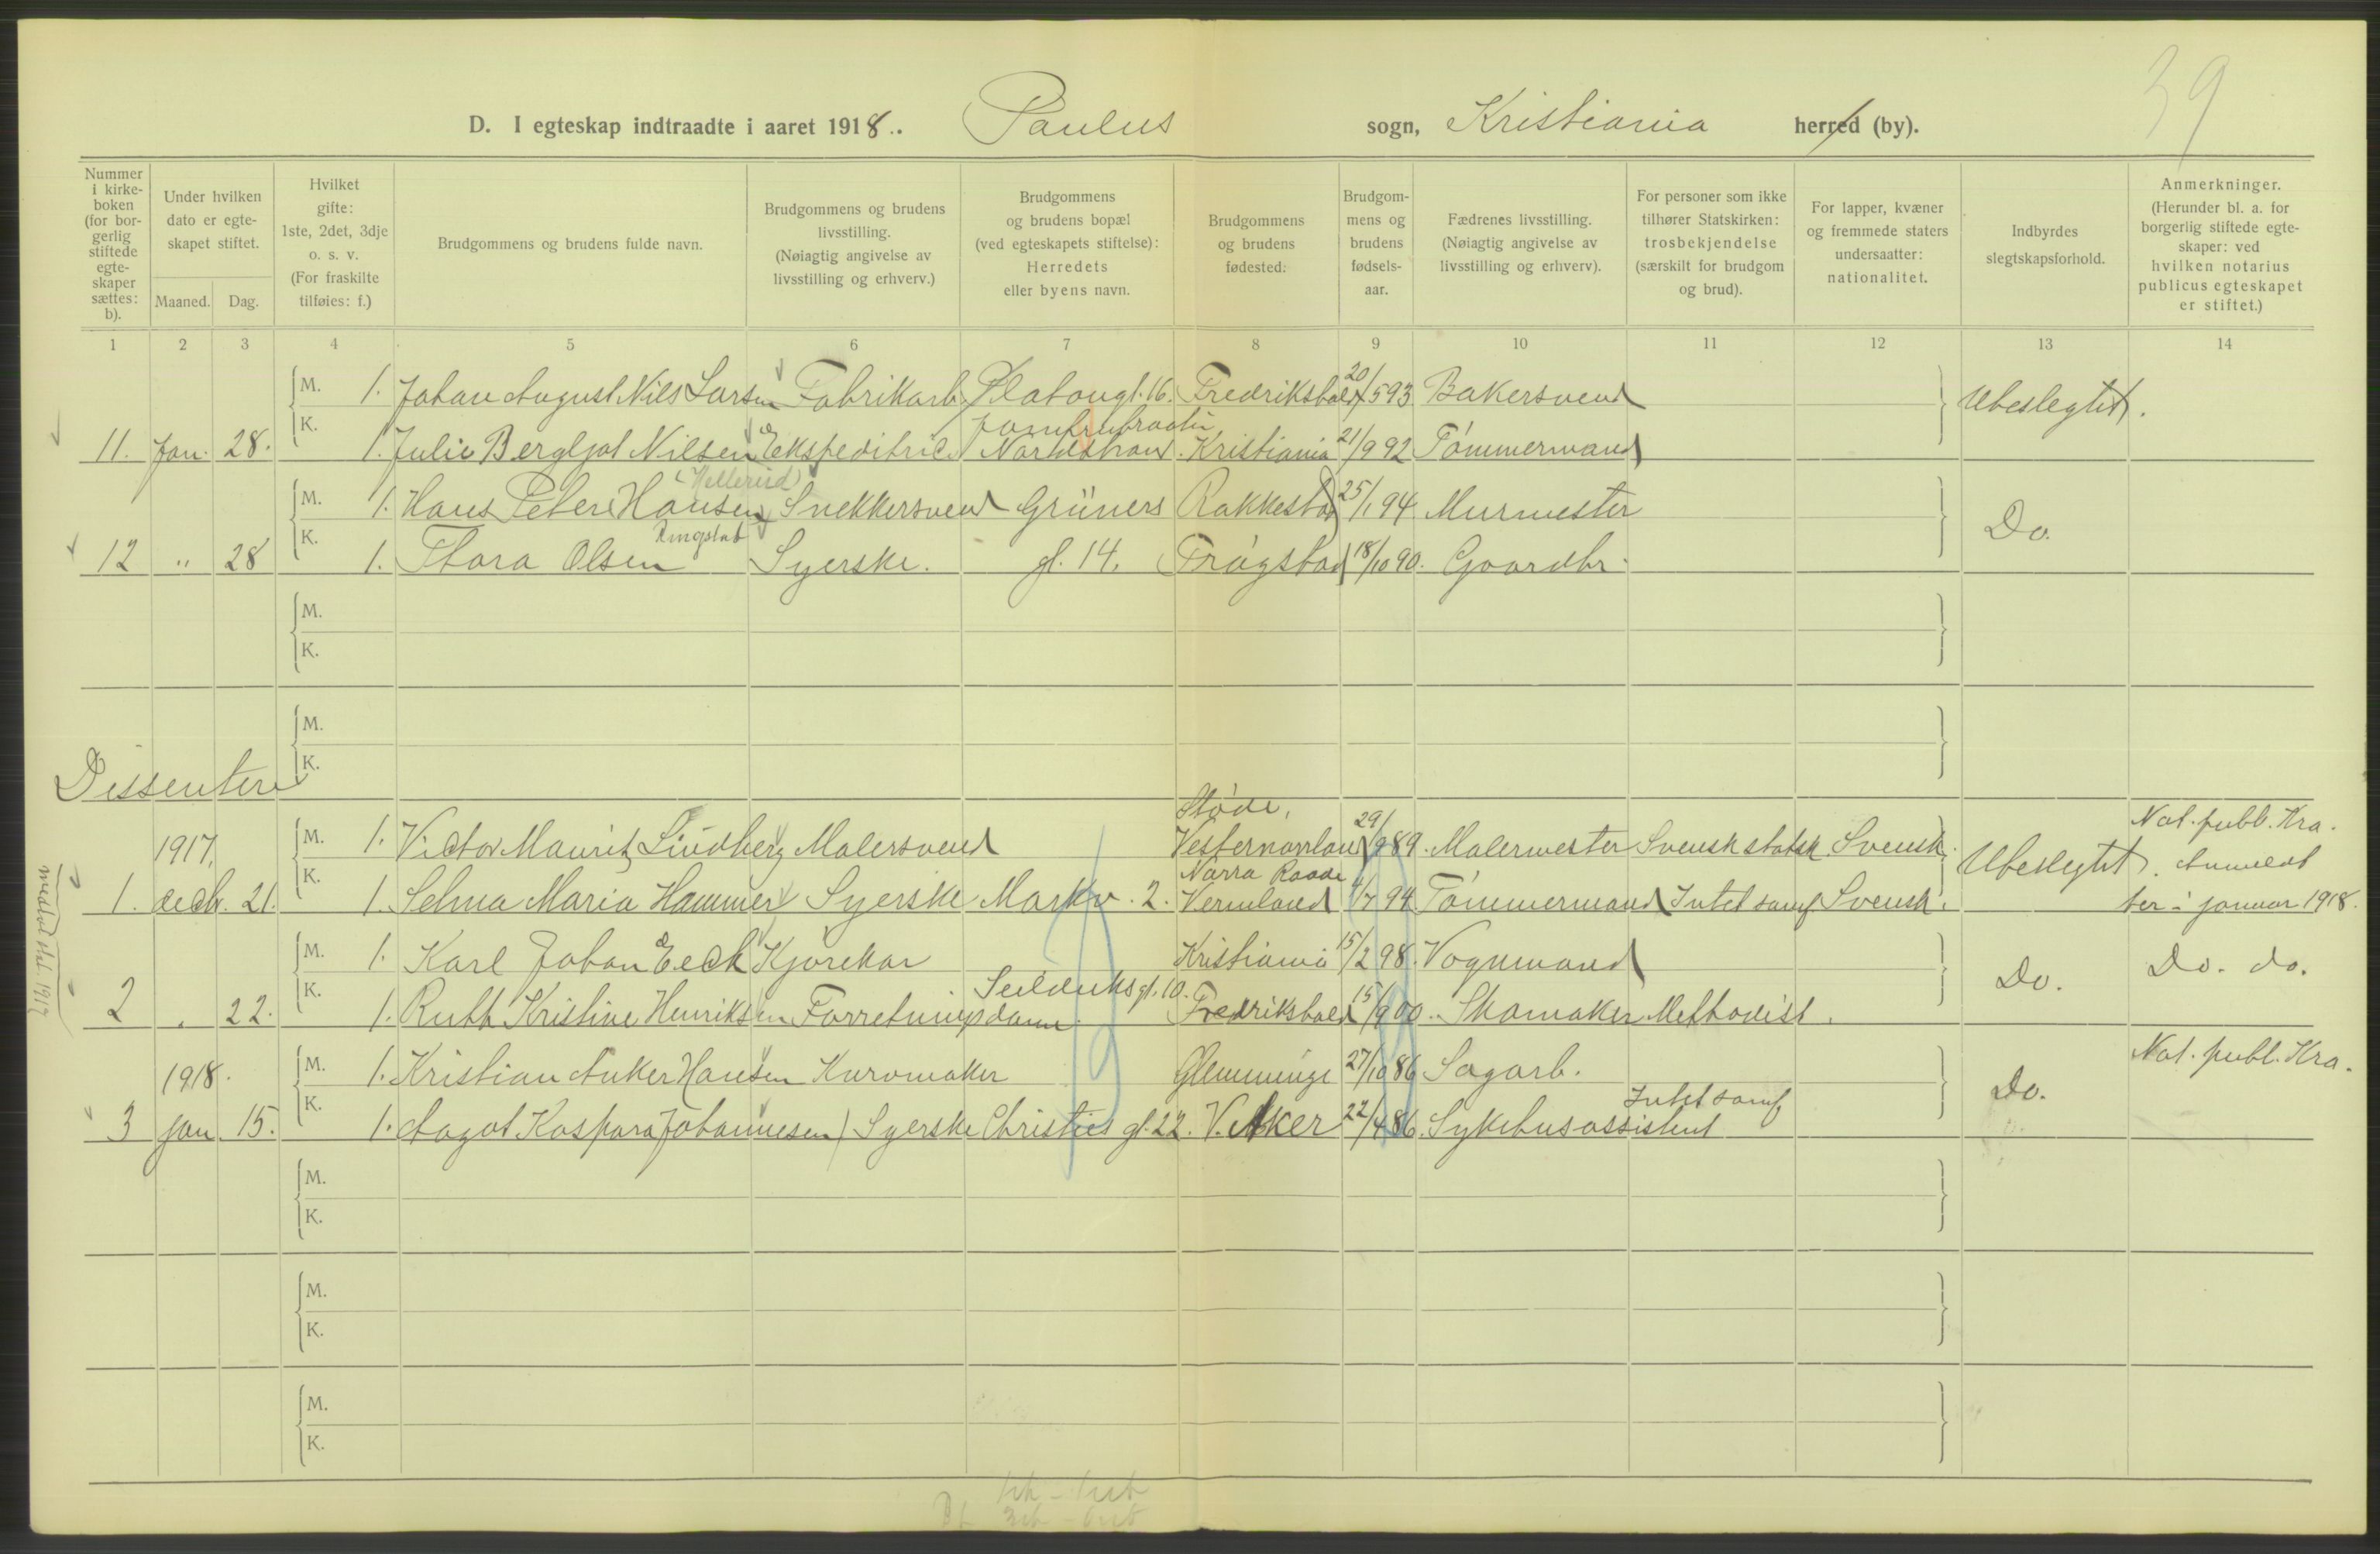 39
D. I egteskap indtraadte i aaret 1918. Paulus sogn, Kristiania herred (by).
Nummer i kirkeboken (for borgerlig stiftede egteskaper sættes: b).
Under hvilken dato er egteskapet stiftet.
Maaned. Dag.
Hvilket gifte: 1ste, 2det, 3dje o. s. v. (For fraskilte tilføies: f.)
Brudgommens og brudens fulde navn.
Brudgommens og brudens livsstilling. (Nøiagtig angivelse av livsstilling og erhverv.)
Brudgommens og brudens bopæl (ved egteskapets stiftelse): Herredets eller byens navn.
Brudgommens og brudens fødested.
Brudgommens og brudens fødselsaar.
Fædrenes livsstilling. (Nøiagtig angivelse av livsstilling og erhverv).
For personer som ikke tilhører Statskirken: trosbekjendelse (særskilt for brudgom og brud).
For lapper, kvæner og fremmede staters undersaatter: nationalitet.
Indbyrdes slegtskapsforhold.
Anmerkninger. (Herunder bl. a. for borgerlig stiftede egteskaper: ved hvilken notarius publicus egteskapet er stiftet.)
1 2 3 4 5 6 7 8 9 10 11 12 13 14
M. 1. Johan August Nils Larsen Fabrikarb. Platougt. 16. Fredrikshald 20/5 93 Bakersvend Ubeslegtet.
Jomfrubraatin
11. Jan. 28. K. 1. Julie Bergljot Nilsen Ekspeditrice Nordstrand Kristiania 21/9 92 Tømmermand
(Hellerud)
M. 1. Hans Peter Hansen Snekkersvend Grüners Rakkestad 25/1 94 Murmester Do.
Ringstad
12 " 28 K. 1. Thora Olsen Syerske. gt. 14. Trøgstad 18/10 90. Gaardbr.
M.
K.
M.
K.
Dissentere
Støde, Not. publ. Kra.
1917. M. 1. Victor Mauritz Lindberg Malersvend Vesternorrland 29/9 89. Malermester Svensk statsk. Svensk. Ubeslegtet. Anmeldt
Norra Raade
1. decbr. 21. K. 1. Selma Maria Hammer Syerske Markv. 2. Vermland 4/7 94 Tømmermand Intet samf. Svensk. ter i januar 1918.
M. 1. Karl Johan Eeck Kjørekar Kristiania 15/2 98. Vognmand Do. Do. do.
Seilduksgt. 10.
2 . 22. K. 1. Ruth Kristine Henriksen Forretningsdame Fredrikshald 15/9 00. Skomaker Methodist.
1918. M. 1. Kristian Anker Hansen Kurvmaker Glemminge 27/10 86 Sagarb. Do. Not. publ. Kra.
Intet samf.
3 jan. 15. K. 1. Aagot Kaspara Johannesen Syerske Christies gt. 22. V. Aker 22/4 86. Sykehusassistent
M.
K.
M.
K.
M.
K.